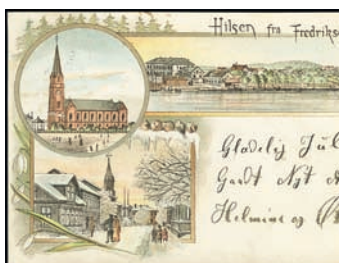 Hilsen fra Fredriks
Gladelig Jul
Godt Nyt
Helmine og